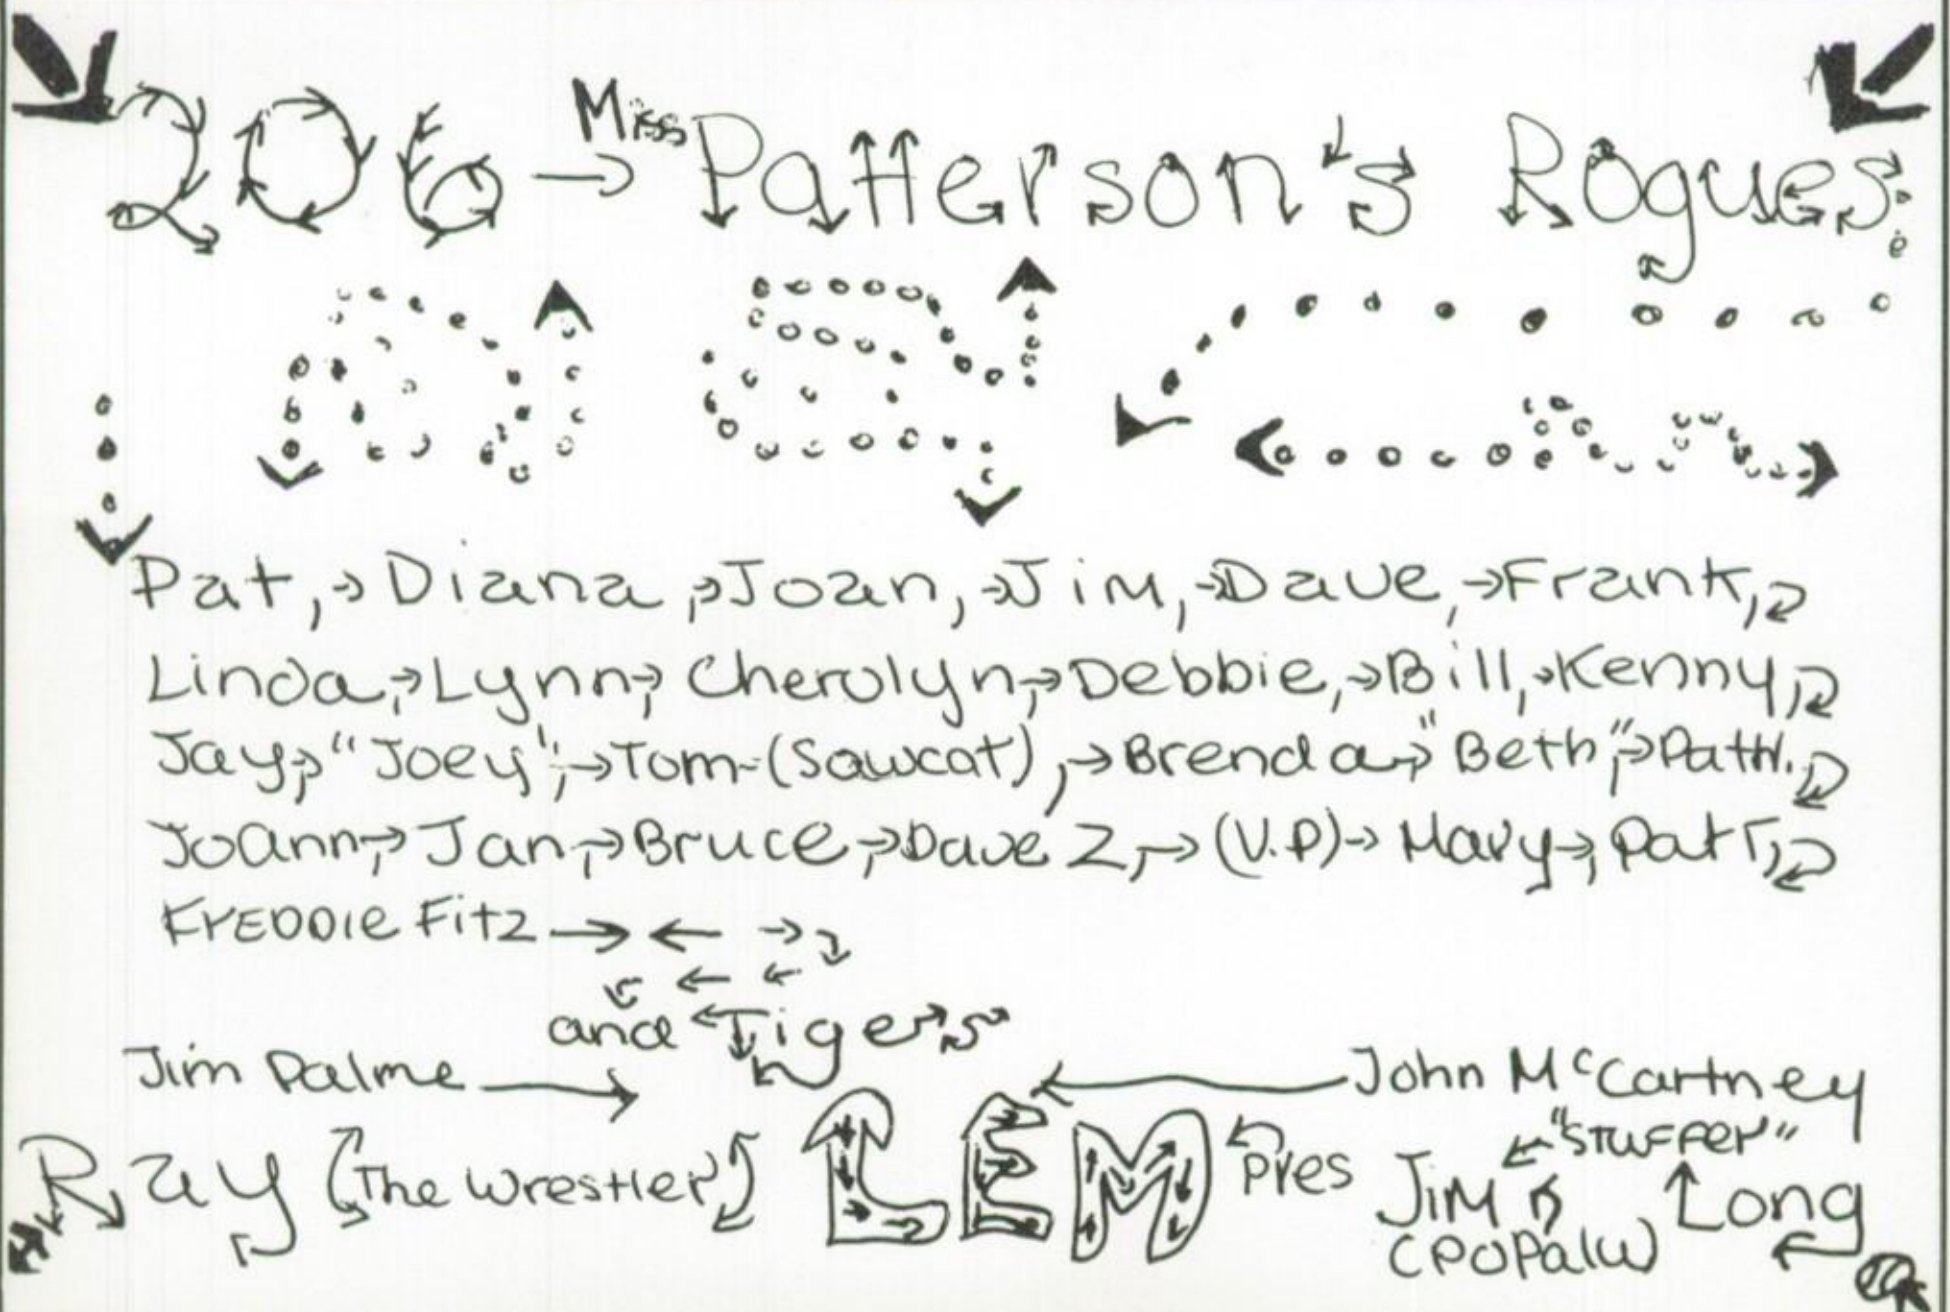 206 → Miss Patterson's Rogues:
Pat, → Diana, → Joan, → Jim, → Dave, → Frank,
Linda, → Lynn, → Cherolyn, → Debbie, → Bill, → Kenny,
Jay, → "Joey", → Tom-(Sawcat), → Brenda, → "Beth", → Patti.
JoAnn, → Jan, → Bruce, → Dave Z, → (V.P) → Mary, → Pat T,
FREDDIE Fitz → ← →
and Tigers
Jim Palme → ← John McCartney
Ray (The Wrestler) LEM Pres Jim "STUFFER" Long
(POPalW)